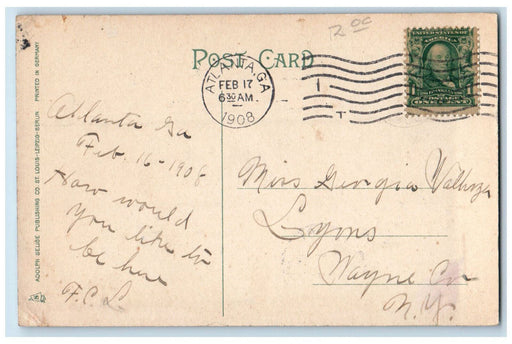 2.00
POST CARD
ATLANTA, GA.
FEB 17
6 30 AM.
1908
ONE CENT
Atlanta Ga
Feb. 16-1908
How would
you like to
be here
F.C.L.
Miss Georgia
Lyons
Wayne Co
N.Y.
ADOLPH SELIGE PUBLISHING CO. ST. LOUIS-LEIPZIG-BERLIN PRINTED IN GERMANY